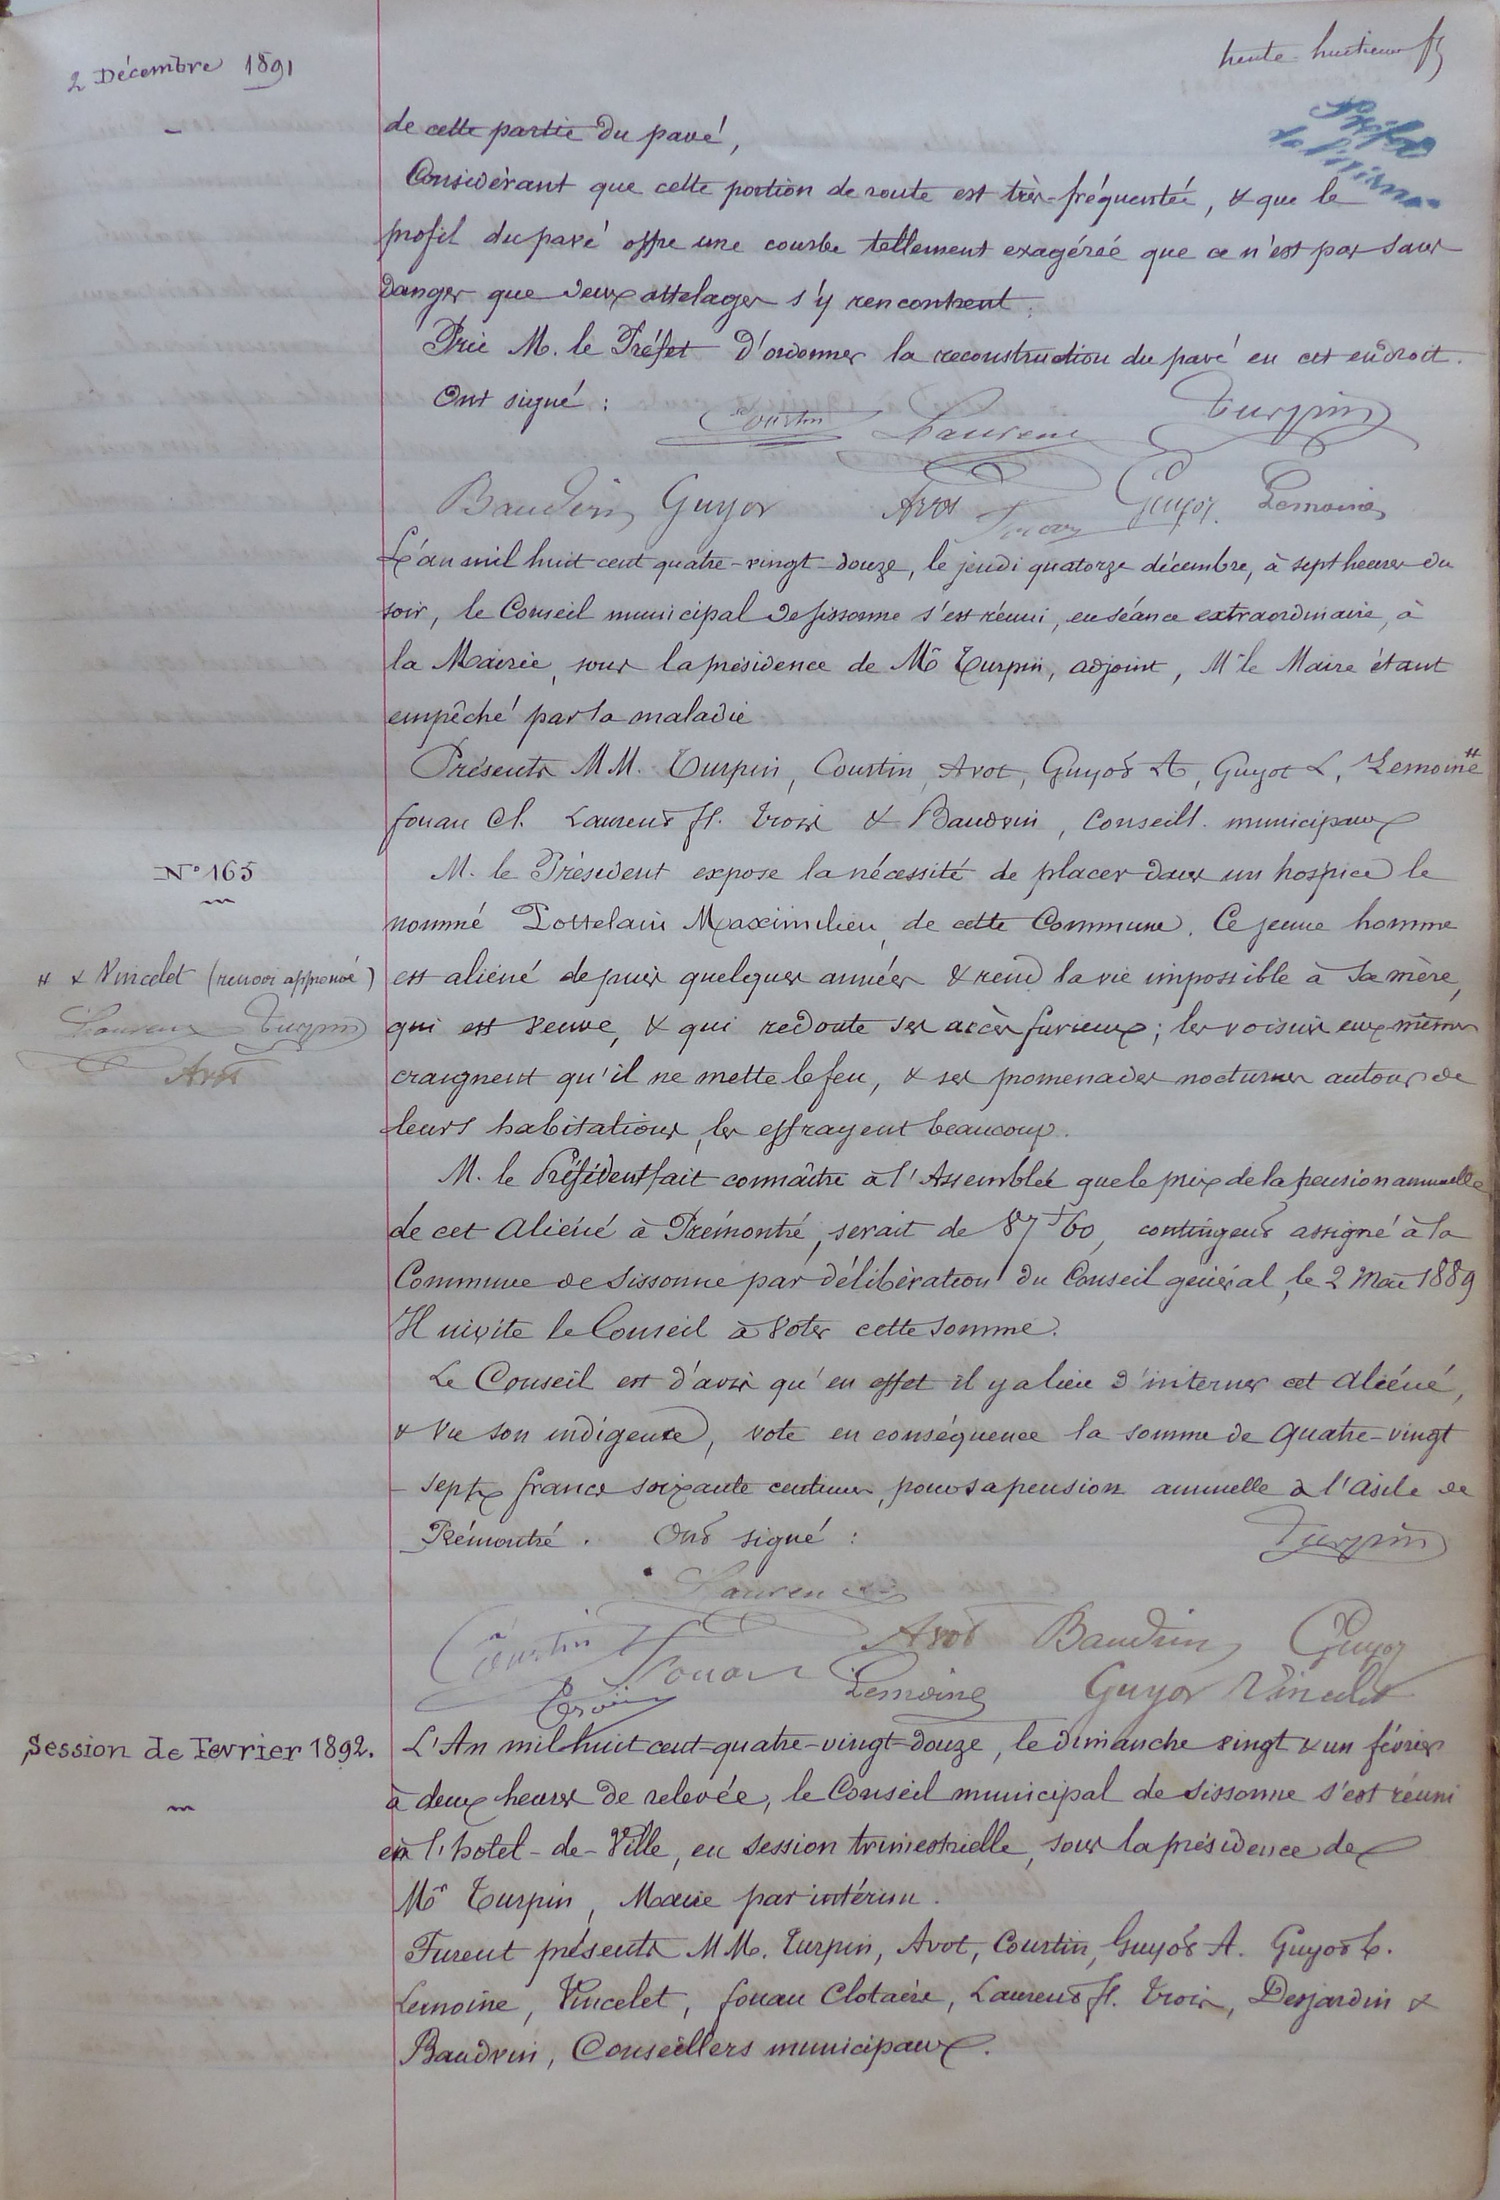 2 Décembre 1891
trente-huitième ft
de cette partie du pavé,
Considérant que cette portion de route est très-fréquentée, & que le
profil du pavé offre une courbe tellement exagérée que ce n'est pas sans
danger que deux attelages s'y rencontrent.
Prie M. le Préfet d'ordonner la reconstruction du pavé en cet endroit.
Ont signé :
Courtin Laurent Turpin
Baudvin Guyot Avot Guyot Lemoine
L'an mil huit cent quatre-vingt-douze, le jeudi quatorze décembre, à sept heures du
soir, le Conseil municipal de Sissonne s'est réuni, en séance extraordinaire, à
la Mairie, sous la présidence de Mr Turpin, adjoint, Mr le Maire étant
empêché par la maladie
Présents MM. Turpin, Courtin, Avot, Guyot A, Guyot L, Lemoine #
fouan Cl. Laurent fl. Trois & Baudvin, Conseill. municipaux
N° 165
M. le Président expose la nécessité de placer dans un hospice le
nommé Pottelain Maximilien, de cette Commune. Ce jeune homme
# & Vincelet (renvoi approuvé)
Laurent Turpin
Avot
est aliéné depuis quelques années & rend la vie impossible à sa mère,
qui est veuve, & qui redoute ses accès furieux ; les voisins eux mêmes
craignent qu'il ne mette le feu, & ses promenades nocturnes autour de
leurs habitations, les effrayent beaucoup.
M. le Président fait connaître à l'Assemblée que le prix de la pension annuelle
de cet aliéné à Prémontré, serait de 87f60, contingent assigné à la
Commune de Sissonne par délibération du Conseil général, le 2 Mai 1889
Il invite le Conseil à voter cette somme.
Le Conseil est d'avis qu'en effet il y a lieu d'interner cet aliéné,
& vu son indigence, vote en conséquence la somme de quatre-vingt
- sept francs soixante centimes, pour sa pension annuelle à l'asile de
Prémontré. Ont signé : Turpin
Laurent
Courtin Fouan Avot Baudvin Guyot
Trois Lemoine Guyot Vincelet
Session de Fevrier 1892.
L'An mil huit cent-quatre-vingt-douze, le dimanche vingt & un février
à deux heures de relevée, le Conseil municipal de Sissonne s'est réuni
en l'hotel-de-Ville, en session trimestrielle, sous la présidence de
Mr Turpin, Maire par intérim.
Furent présents MM. Turpin, Avot, Courtin, Guyot A. Guyot L.
Lemoine, Vincelet, fouan Clotaire, Laurent fl. Trois, Desjardin &
Baudvin, Conseillers municipaux.